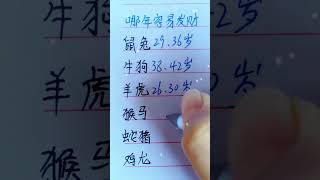 哪年容易发财
鼠兔29.36岁
牛狗38.42岁
羊虎26.30岁
猴马
蛇猪
鸡龙